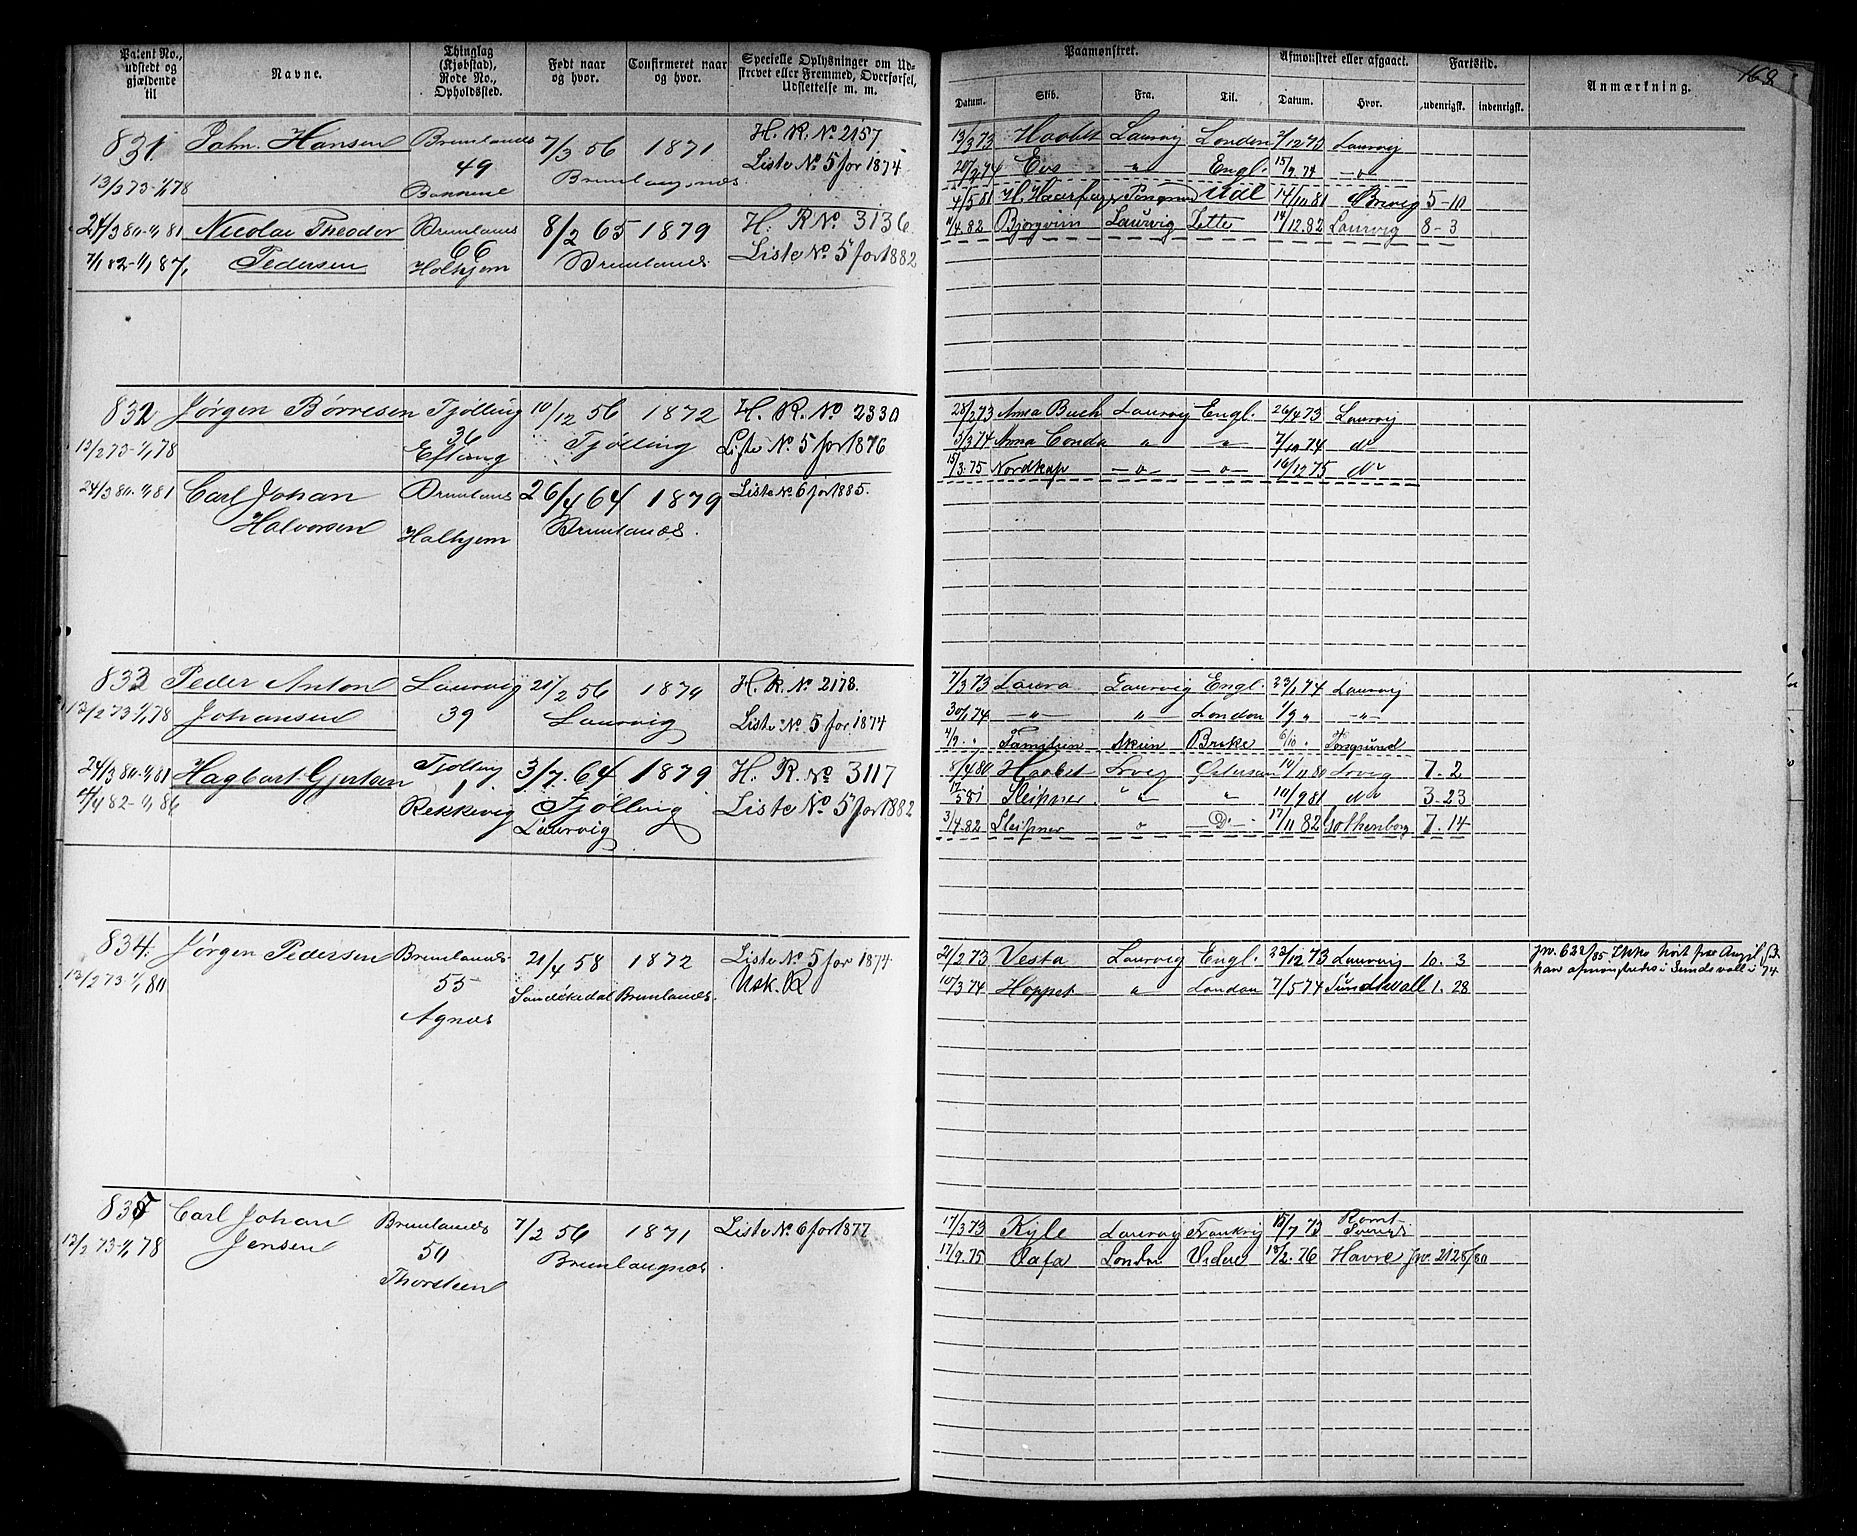 168
Patent No., udstedt og gjældende til
Navne.
Thinglag (Kjøbstad), Rode No., Opholdssted.
Født naar og hvor.
Confirmeret naar og hvor.
Specielle Oplysninger om Udskrevet eller Fremmed, Overførsel, Udslettelse m. m.
Paamønstret.
Datum. Skib. Fra. Til.
Afmønstret eller afgaaet.
Datum. Hvor.
Fartstid.
udenrigsk. indenrigsk.
Anmærkning.
831 Hansen Brunlanes 7/3 56 1871 H. R. No 2157
13/2 73-1/1 78 49 Brunlangnæs Liste No 5 for 1874
24/3 80-1/1 81 Nicolai Theodor Brunlanes 8/2 65 1879 H. R No 3136
7/1 82-1/1 87, Pedersen 66 Holhjem Brunlanes Liste No 5 for 1882
13/3 73 Haabet Laurvig London 2/12 73 Laurvig
20/2 74 " Engl. 15/9 74 -"-
4/5 81 14/10 81 Brevig 5-10
11/4 82 Bjorgvin Laurvig 14/12.82 Laurvig 8-3
832 Jørgen Børresen Tjølling 10/12 56 1872 H. R. No 2330
13/2 73-1/1 78 36 Eftang Tjølling Liste No 5 for 1876
24/3 80-1/1 81 Carl Johan Brunlanes 26/4 64 1879 Liste No 6 for 1885.
Halvorsen Holhjem Brunlanes.
28/2 73 Anna Buch Laurvig Engl. 26/4 73 Laurvig
5/3 74 Anna " " 7/10 74
15/3.75 Nordkap -"- -"- 16/12 75
833 Peder Anton Laurvig 21/2 56 1870 H. R. No 2178.
13/2 73-1/1 78 Johansen 39 Laurvig Liste No 5 for 1874
24/3 80-1/1 81 Hagbart Gjertsen Tjølling 3/7. 64 1879 H. R. No 3117
4/4 82-1/1 86 1 Rekkevig Tjølling Laurvig Liste No 5 for 1882
7/3 73 Laura Laurvig Engl. 23/1 74 Laurvig
30/1 74 -"- -"- London 1/9 " -"-
4/9. " Familien Skien 6/10 "
8/4 80 Haabet Lrvig Østersøen 10/11 80 Lrvig 7.2
Sleipner " " 10/9 81 3-23
3/4.82 Sleipner " 17/11 82 Gothenborg 7.14
834. Jørgen Pedersen Brunlanes 21/4 58 1872 Liste No 5 for 1874
13/2 73 1/1 80 55 Agnæs Sandøkedal Brunlanes. Usk. R
21/2 73 Vesta Laurvig Engl. 23/12 73 Laurvig 10. 3
10/3 74 Hoppet " London 7/5 74 Sundswall 1. 28
Jno. 622/85 Ikke
han afmønstredes i Sundsvall i 74
835 Carl Johan Brunlanes 7/2 56 1871 Liste No 6 for 1877
13/2 73-1/1 78 Jensen 50 Brunlangnæs.
17/3 73 Kyle Laurvig 15/7 73
17/9.75 London 18/2.76 Havre Jno. 2128/80